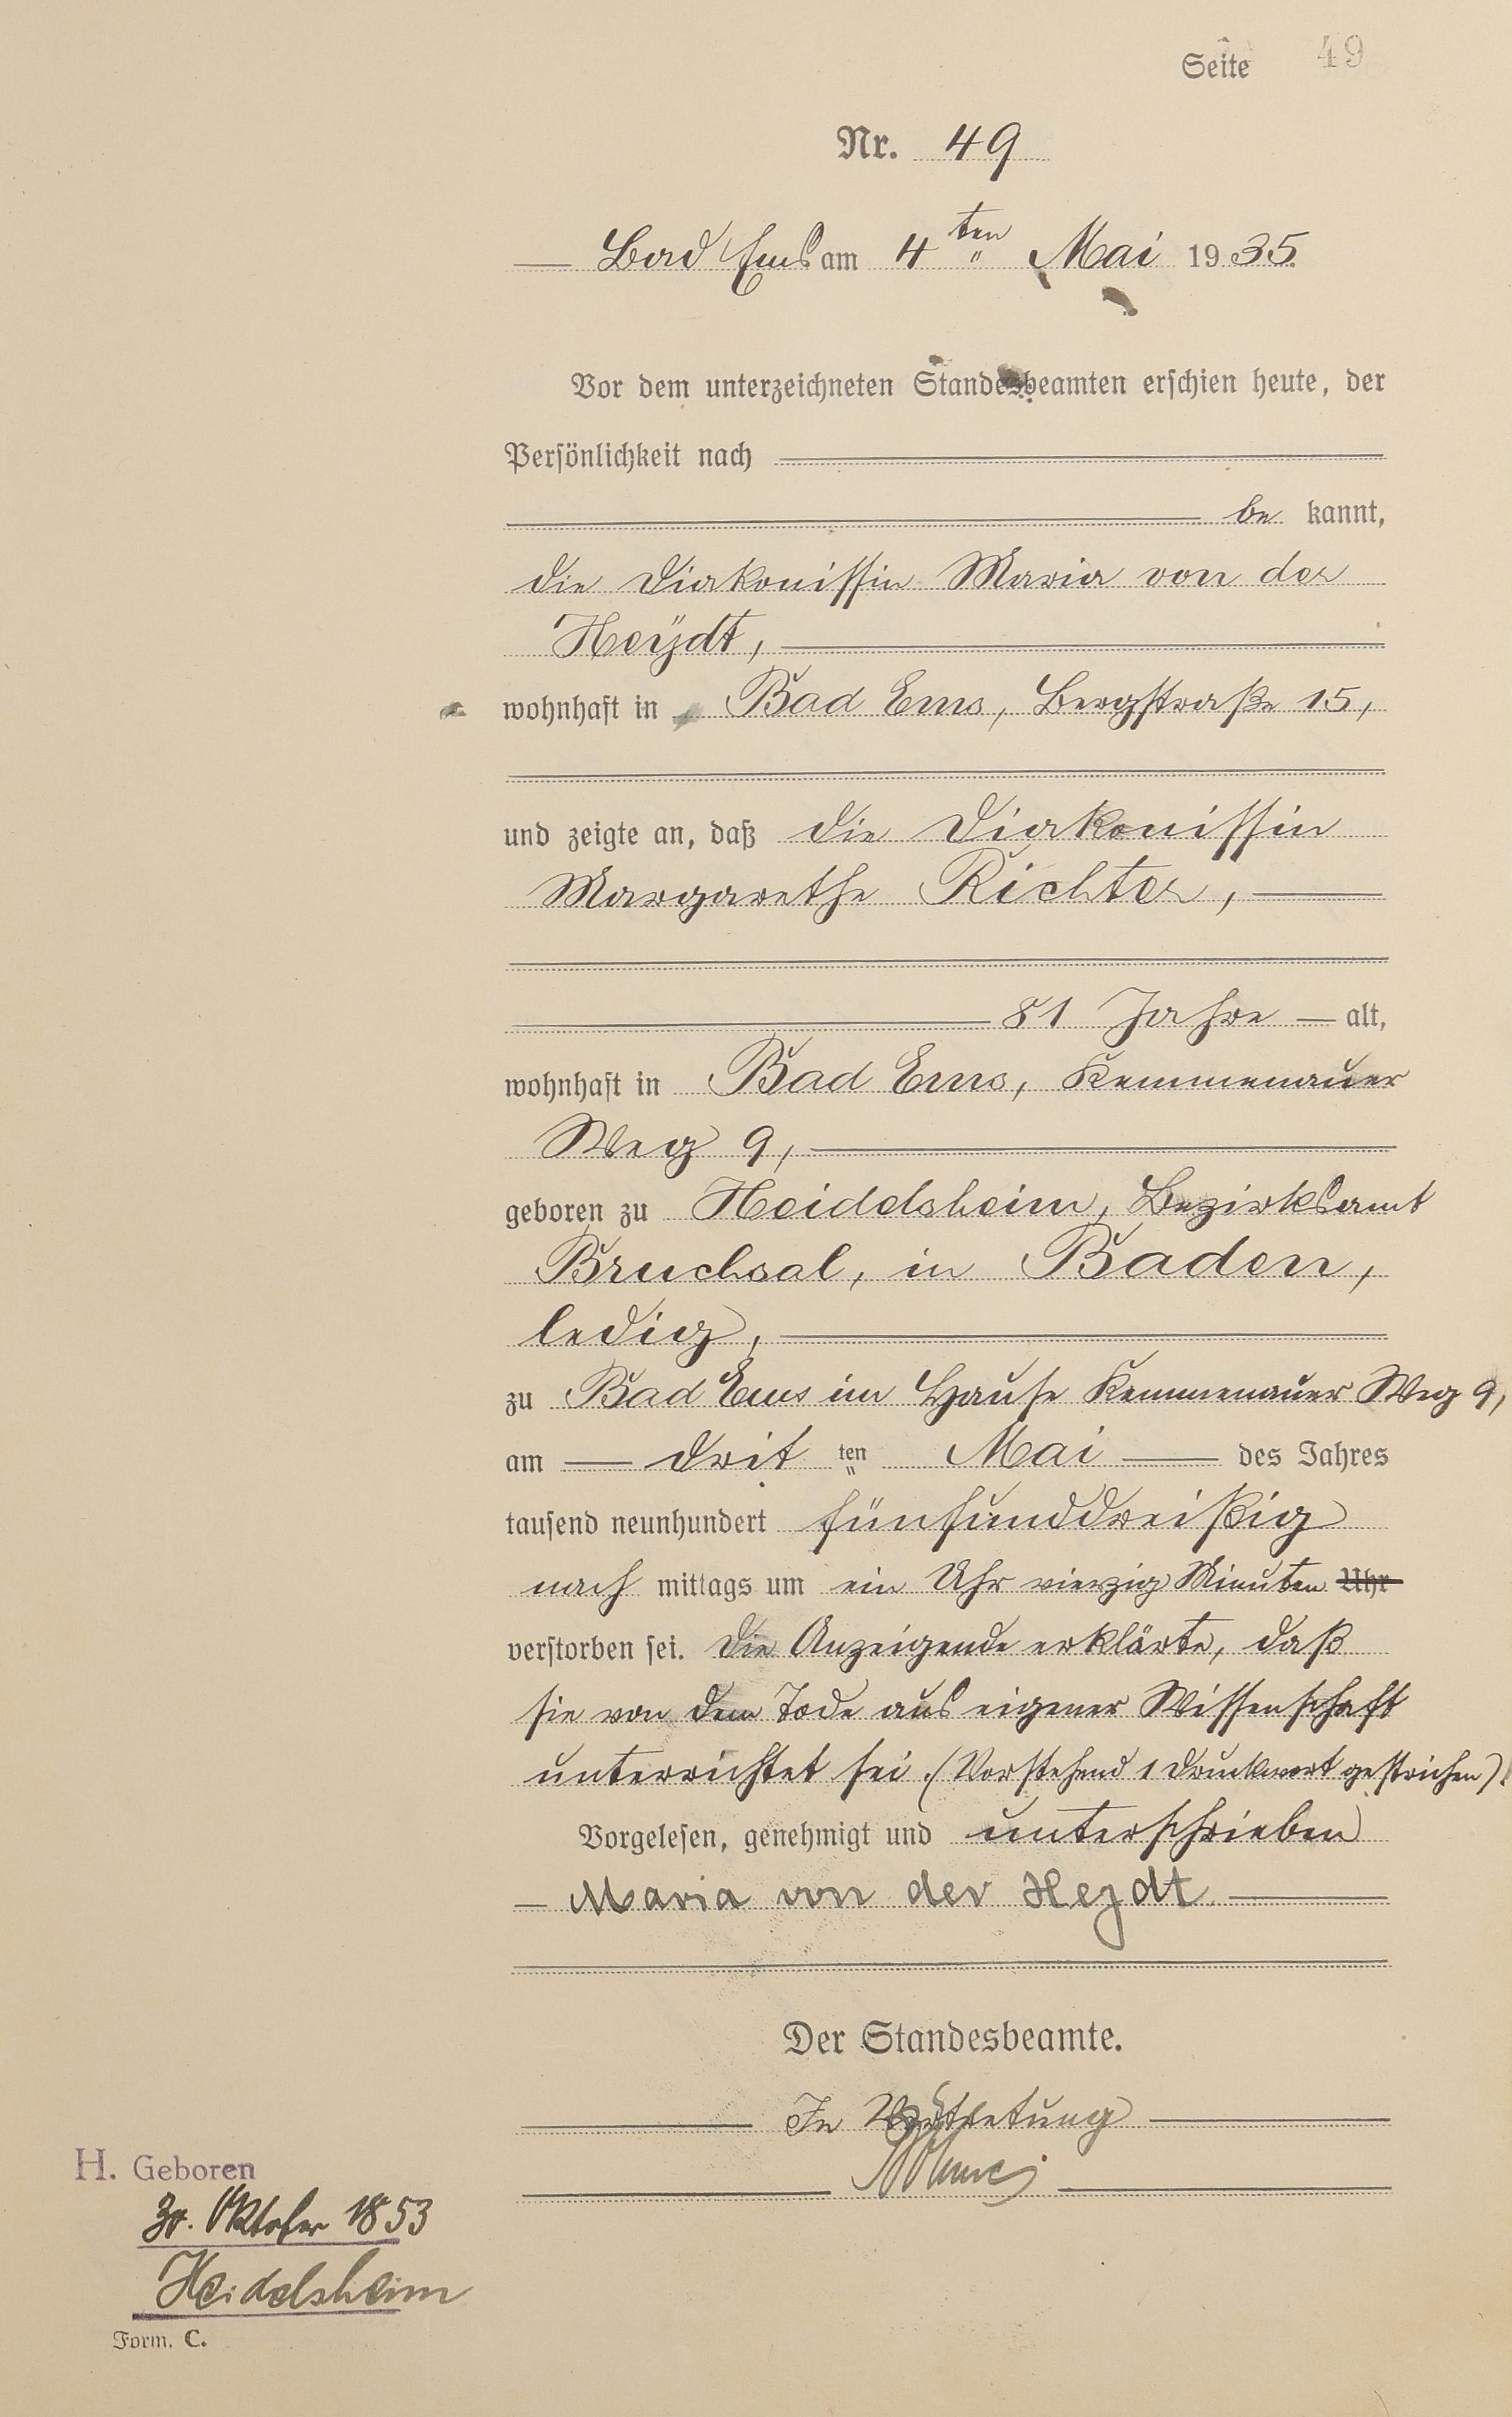 Seite 49
Nr. 49
Bad Ems am 4ten Mai 1935.
Vor dem unterzeichneten Standesbeamten erschien heute, der
Persönlichkeit nach
be kannt,
die Diakonissin Maria von der
Heÿdt,
wohnhaft in Bad Ems, Bergstraße 15,
und zeigte an, daß die Diakonissin
Margarethe Richter,
81 Jahre alt,
wohnhaft in Bad Ems, Kemmenauer
Weg 9,
geboren zu Heidelsheim, Bezirksamt
Bruchsal, in Baden,
ledig,
zu Bad Ems im Hause Kemmenauer Weg 9,
am drit ten Mai des Jahres
tausend neunhundert fünfunddreißig
nach mittags um ein Uhr vierzig Minuten Uhr
verstorben sei. Die Anzeigende erklärte, daß
sie von dem Tode aus eigener Wissenschaft
unterrichtet sei. (Vorstehend 1 Druckwort gestrichen).
Vorgelesen, genehmigt und unterschrieben
Maria von der Heydt
Der Standesbeamte.
In Vertretung
H. Geboren
Oktober 1853
Heidelsheim
Form. C.